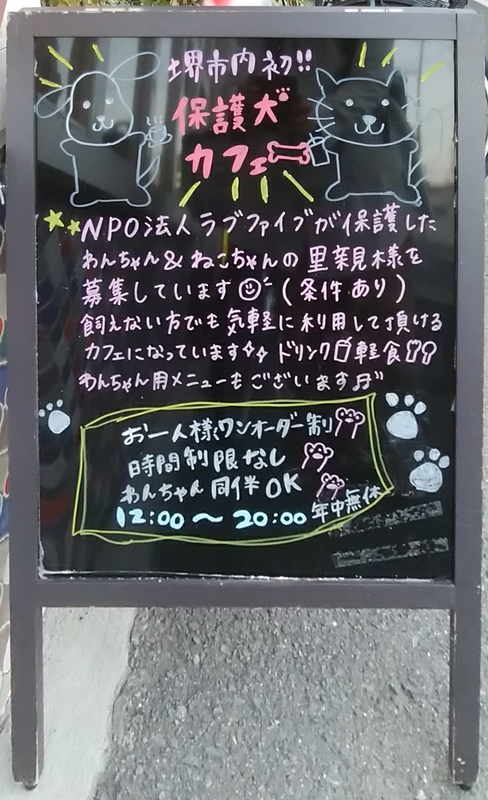 堺市内初!!
保護犬
カフェ
NPO法人ラブファイブが保護した
わんちゃん&ねこちゃんの里親様を
募集しています(条件あり)
飼えない方でも気軽に利用して頂ける
カフェになっています ドリンク 軽食
わんちゃん用メニューもございます♬
お一人様ワンオーダー制
時間制限なし
わんちゃん同伴OK
12:00〜20:00 年中無休